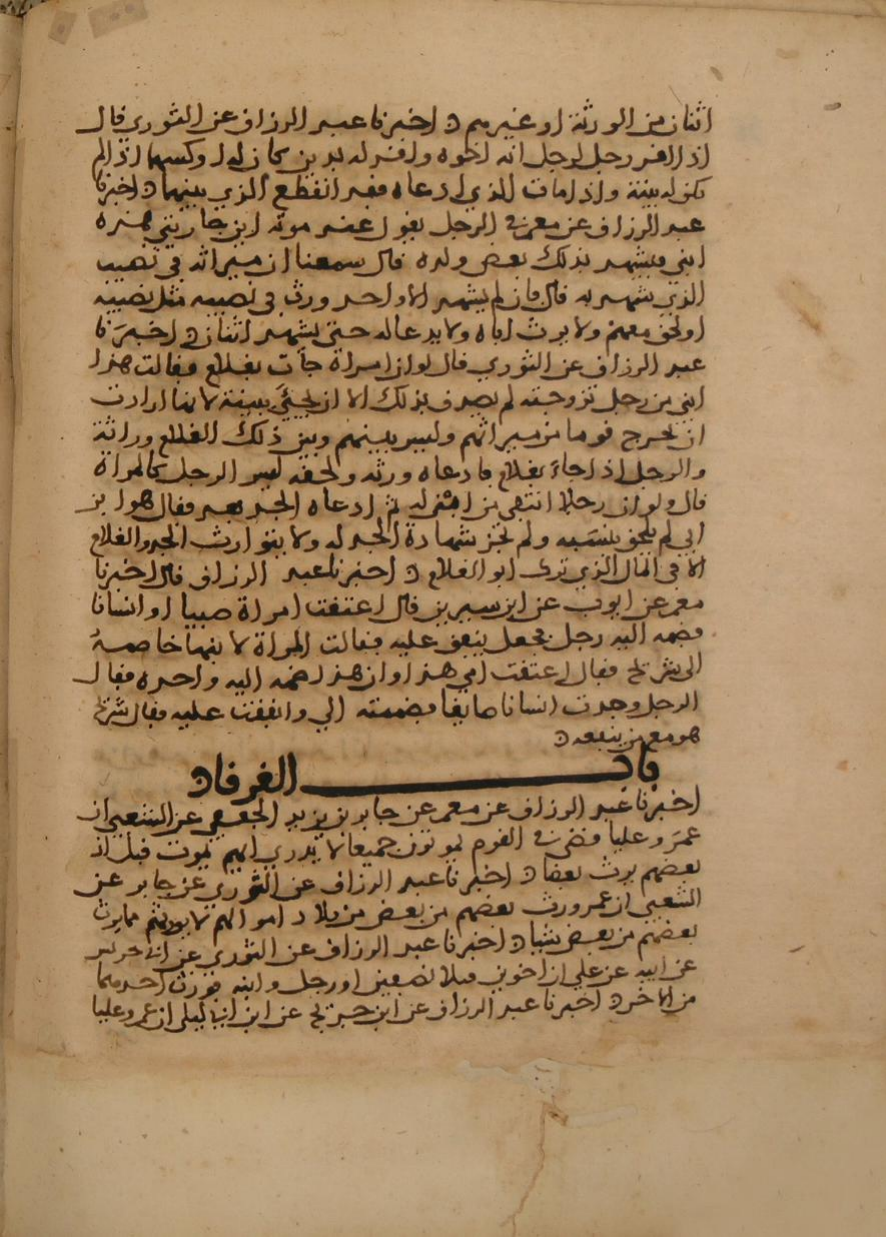 اثنان من الورثة او غيرهم ○ اخبرنا عبد الرزاق عن الثوري قال
اذا اقر رجل لرجل انه اخوه واقر له بدين كان له اوكسهما اذا لم
تكن له بينة واذا مات الذي ادعاه فقد انقطع الذي بينهما ○ اخبرنا
عبد الرزاق عن معمر في الرجل يقول عند موته ابن جاريتي هذه
ابني فيشهد بذلك بعض ولده قال سمعنا ان ميراثه في نصيب
الذي شهد به قال فان لم يشهد الا واحد ورث في نصيبه مثل نصيبه
لو لحق معهم ولا يرث اباه ولا يدعا له حتى يشهد اثنان ○ اخبرنا
عبد الرزاق عن الثوري قال لو ان امراة جات بغلام فقالت هذا
ابني من رجل تزوجته لم تصدق بذلك الا ان تجئ ببينة لانها ارادت
ان تخرج قوما من ميراثهم وليس بينهم وبين ذلك الغلام وراثة
والرجل اذا جاء بغلام فادعاه ورثه ولحقه ليس الرجل كالمراة
قال ولو ان رجلا انتفى من ابن له ثم ادعاه الجد بعد فقال هو ابن
ابني لم يلحق بنسبه ولم تجز شهادة الجد له ولا يتوارث الجد والغلام
الا في المال الذي ترك ابو الغلام ○ اخبرنا عبد الرزاق قال اخبرنا
معمر عن ايوب عن ابن سيرين قال اعتقت امراة صبيا او انسانا
فضمه اليه رجل فجعل ينفق عليه فقالت المراة لابنها خاصمه
الى شريح فقال اعتقت امي هذا وان هذا ضمه اليه واخذه فقال
الرجل وجدت انسانا ضايعا فضممته الي وانفقت عليه فقال شريح
هو مع من ينفعه ○
باب الغرقا ○
اخبرنا عبد الرزاق عن معمر عن جابر بن يزيد الجعفي عن الشعبي ان
عمر وعليا قضيا في القوم يموتون جميعا لا يدري ايهم يموت قبل ان
بعضهم يرث بعضا ○ اخبرنا عبد الرزاق عن الثوري عن جابر عن
الشعبي ان عمر ورث بعضهم من بعض من تلاد اموالهم لا يورثهم مما يرث
بعضهم من بعض شيا ○ اخبرنا عبد الرزاق عن الثوري عن
عن ابيه عن علي ان اخوين قتلا بصفين او رجل وابنه فورث احدهما
من الاخر ○ اخبرنا عبد الرزاق عن ابن جريج عن ابن ابي ليلى ان عمر وعليا